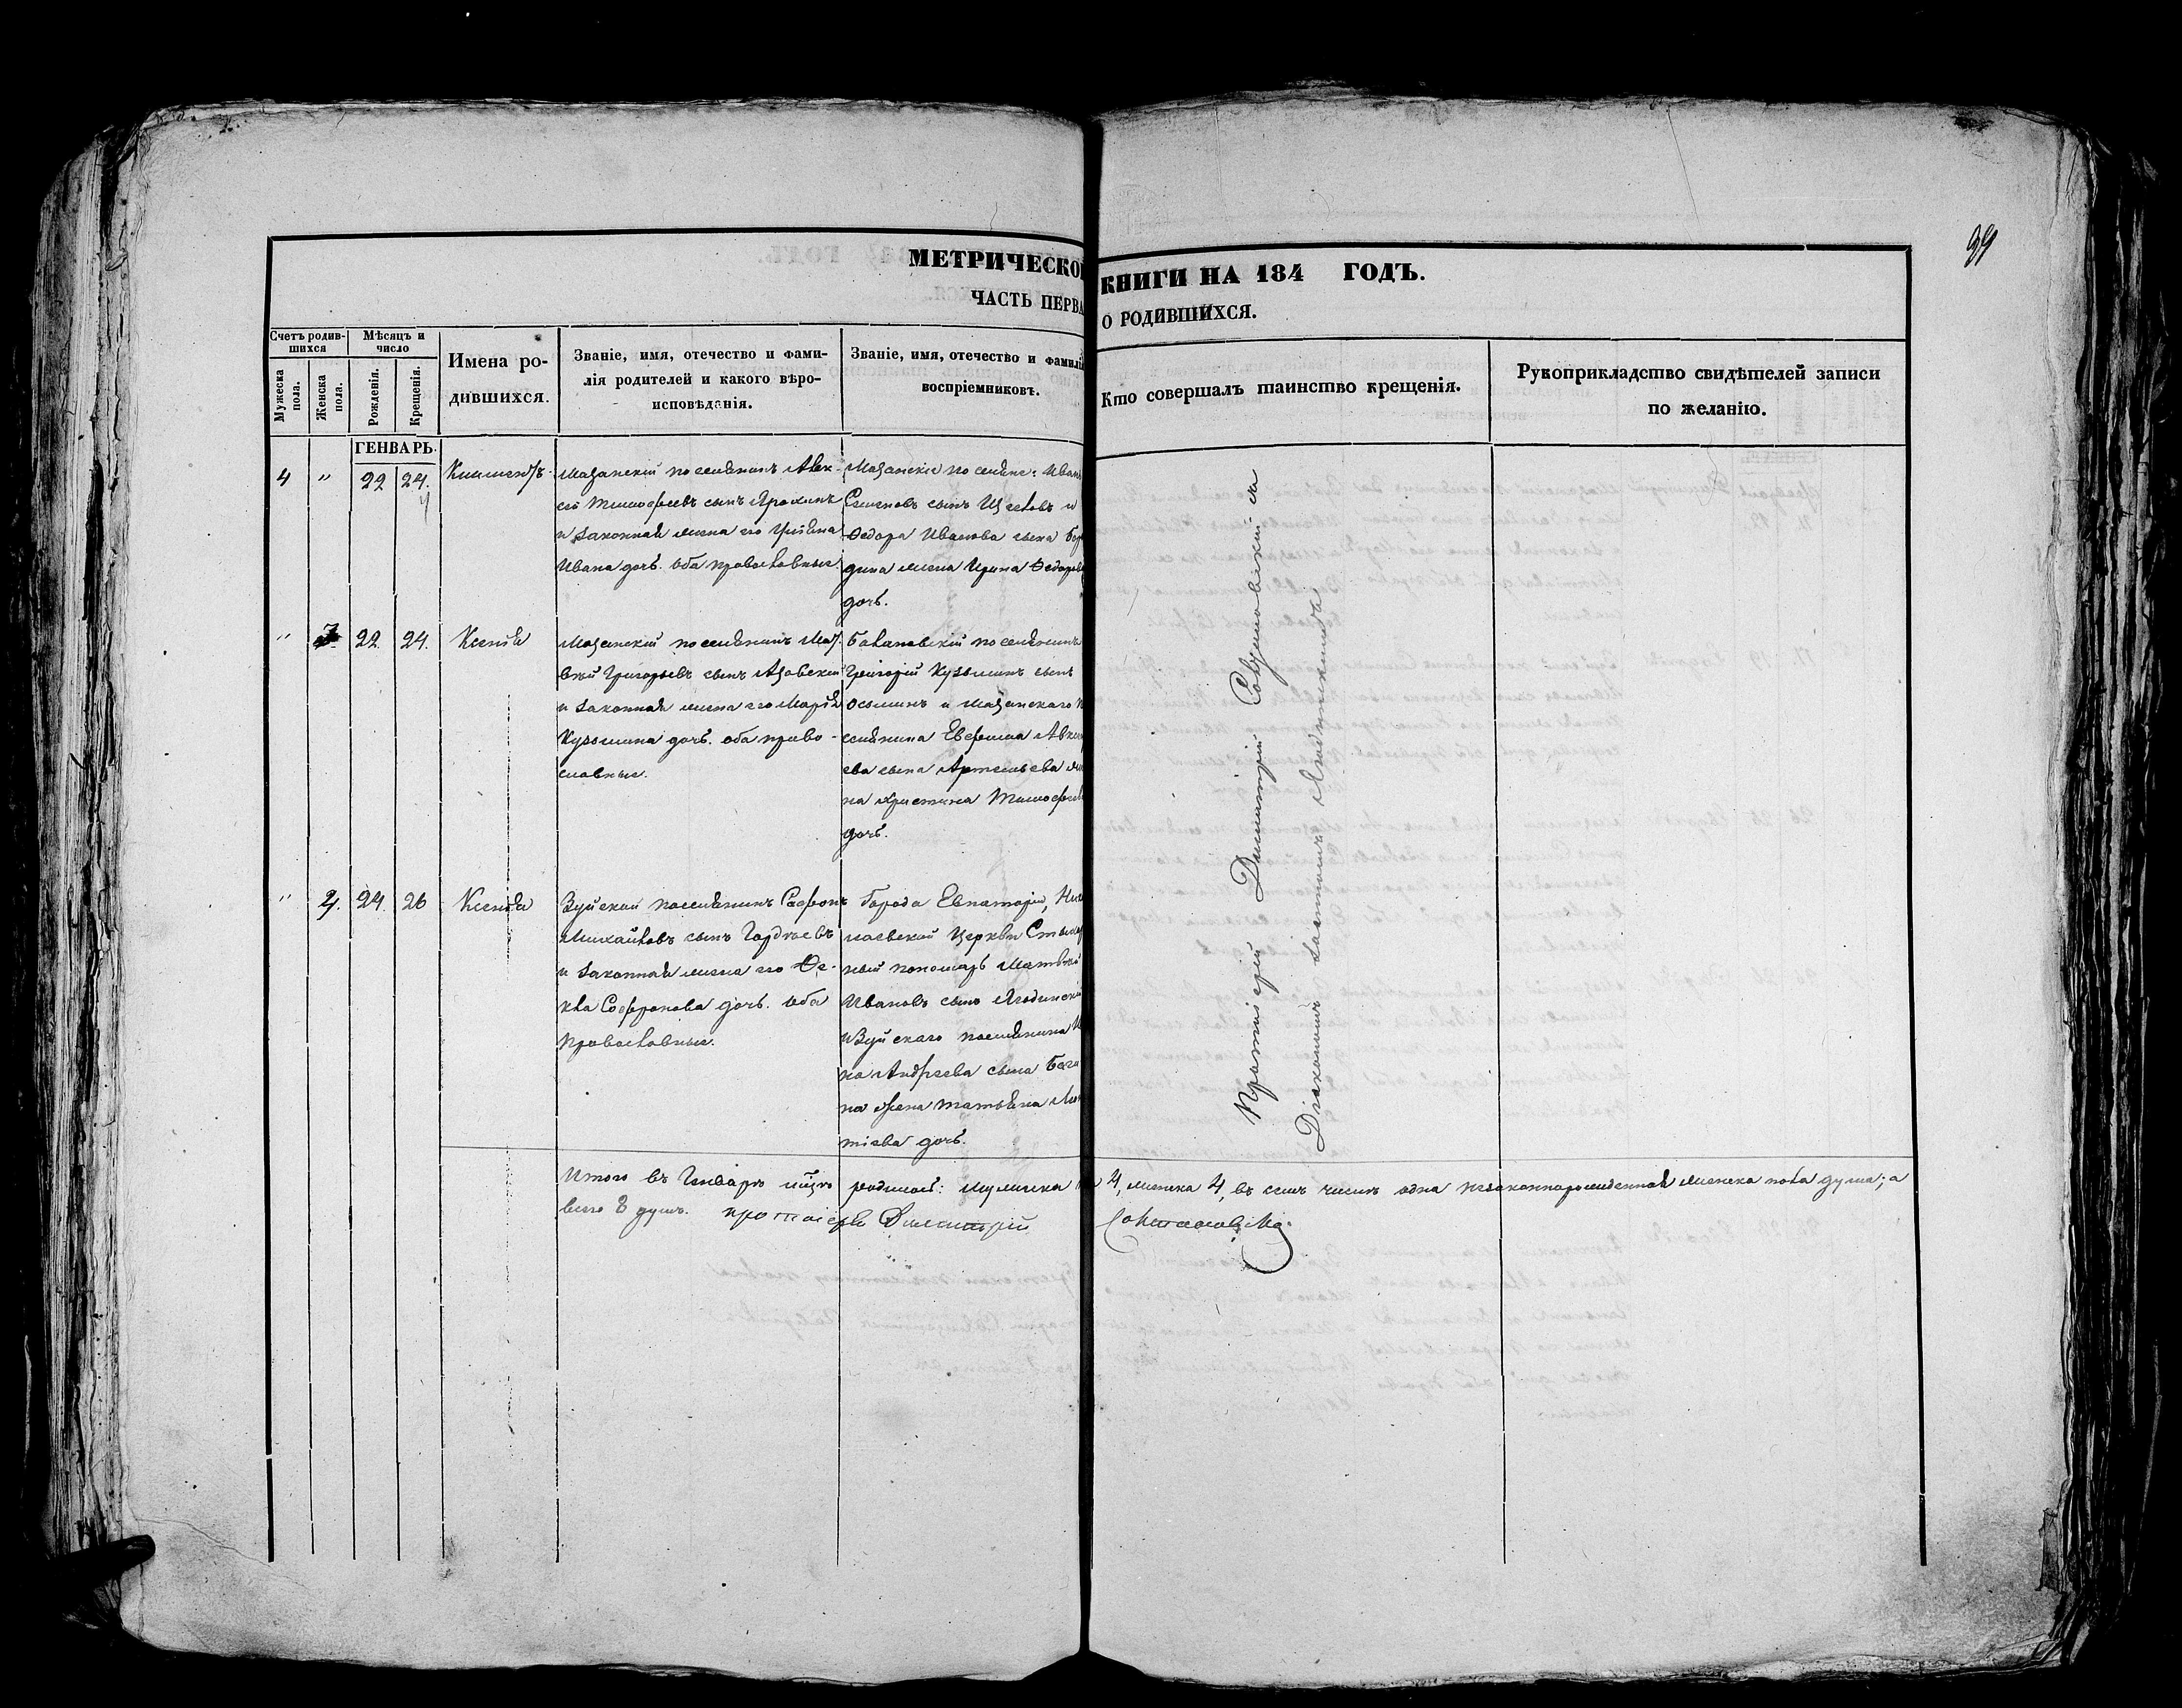 39
МЕТРИЧЕСКОЙ КНИГИ НА 184 ГОДЪ.
ЧАСТЬ ПЕРВА О РОДИВШИХСЯ.
Счетъ родив-
шихся
Мужеска пола.
Женска пола.
Мѣсяцъ и
число
Рожденія.
Крещенія.
Имена ро-
дившихся.
Званіе, имя, отечество и фами-
лія родителей и какого вѣро-
исповѣданія.
Званіе, имя, отечество и фамилі
воспріемниковъ.
Кто совершалъ таинство крещенія.
Рукоприкладство свидѣтелей записи
по желанію.
ГЕНВАРЬ.
4 " 22 24.
Климентъ
Мазанскій поселянинъ Алек-
сѣй Тимофеевъ сынъ
и законная жена его
Ивана дочь. оба православные.
Мазанскіе поселяне: Иванъ
Семеновъ сынъ и
Ѳедора Иванова сына
дина жена Ирина Ѳедорова
дочь.
" 3. 22. 24.
Ксенія
Мазанскій поселянинъ Мат-
вѣй Григорьевъ сынъ Азовскій
и законная жена его Марія
Кузьмина дочь. оба право-
славные.
поселянинъ
Григорій Кузьминъ сынъ
Осьминъ и Мазанскаго по
селянина Евфима
ева сына Артемьева же
на Христина Тимофеева
дочь.
" 4. 24. 26
Ксенія
Зуйскій поселянинъ Сафонъ
Михайловъ сынъ Гордѣевъ
и законная жена его Ѳе-
кла Софронова дочь. оба
православные.
Города Евпаторіи, Ни
лаевской Церкви
ный пономарь Матвѣй
Ивановъ сынъ Ягодинскій
и Зуйскаго поселянина
на Андреева сына
на жена Татьяна
тіева дочь.
Протоіерей Димитрій
Діакономъ Ягодинскимъ
Итого въ Генварѣ родилось: мужеска 4, женска 4, въ семъ числѣ одна незаконнорожденная женска пола душа; а
всего 8 душъ. протоіерей Димитрій